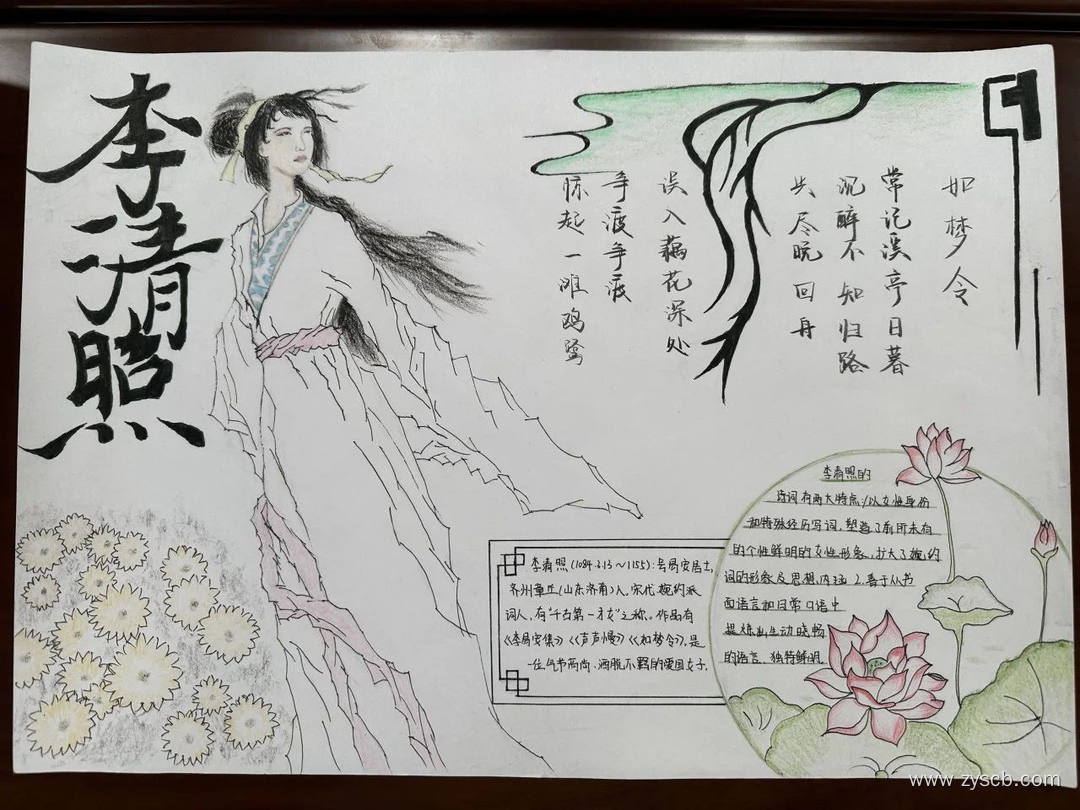 李清照
如梦令
常记溪亭日暮
沉醉不知归路
兴尽晚回舟
误入藕花深处
争渡争渡
惊起一滩鸥鹭
李清照(1084.3.13~1155):号易安居士,
齐州章丘(山东济南)人,宋代婉约派
词人,有"千古第一才女"之称。作品有
《李易安集》《声声慢》《如梦令》,是
一位气节高尚、洒脱不羁的爱国女子.
李清照的
诗词有两大特点:1.以女性身份
和特殊经历写词,塑造了前所未有
的个性鲜明的女性形象,扩大了婉约
词的形象及思想内涵 2.善于从书
面语言和日常口语中
提炼出生动晓畅
的语言,独特鲜明.
www.zyscb.com